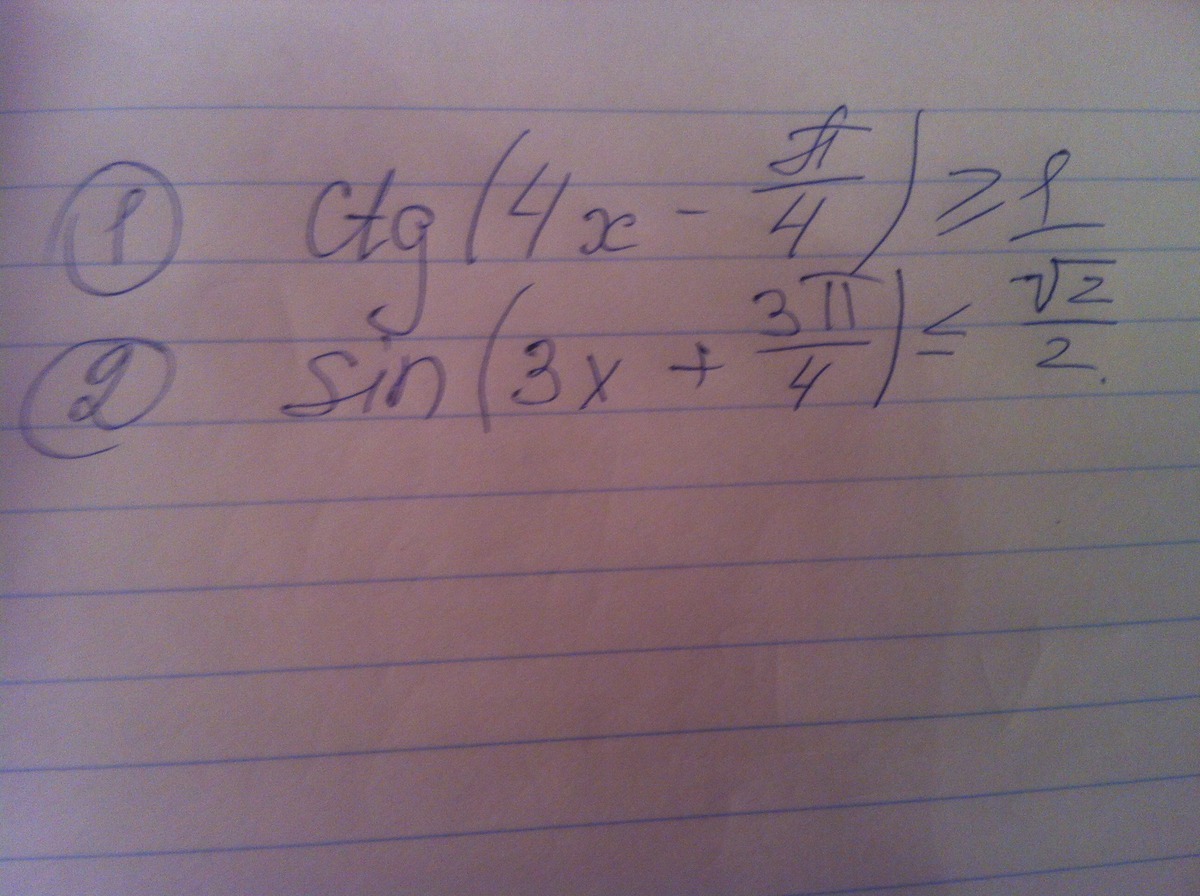 ① Ctg(4x - π/4) ≥ 1
② sin(3x + 3π/4) ≤ √2/2.